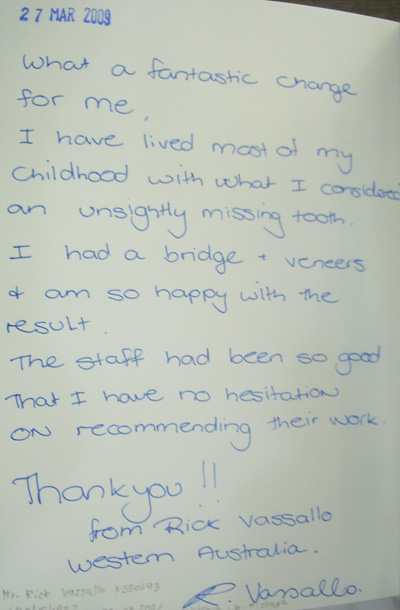 27 MAR 2009
What a fantastic change
for me,
I have lived most of my
childhood with what I considered
an unsightly missing tooth.
I had a bridge + veneers
& am so happy with the
result.
The staff had been so good
that I have no hesitation
on recommending their work.
Thankyou !!
from Rick Vassallo
Western Australia.
R. Vassallo.
Mr. Rick Vassallo